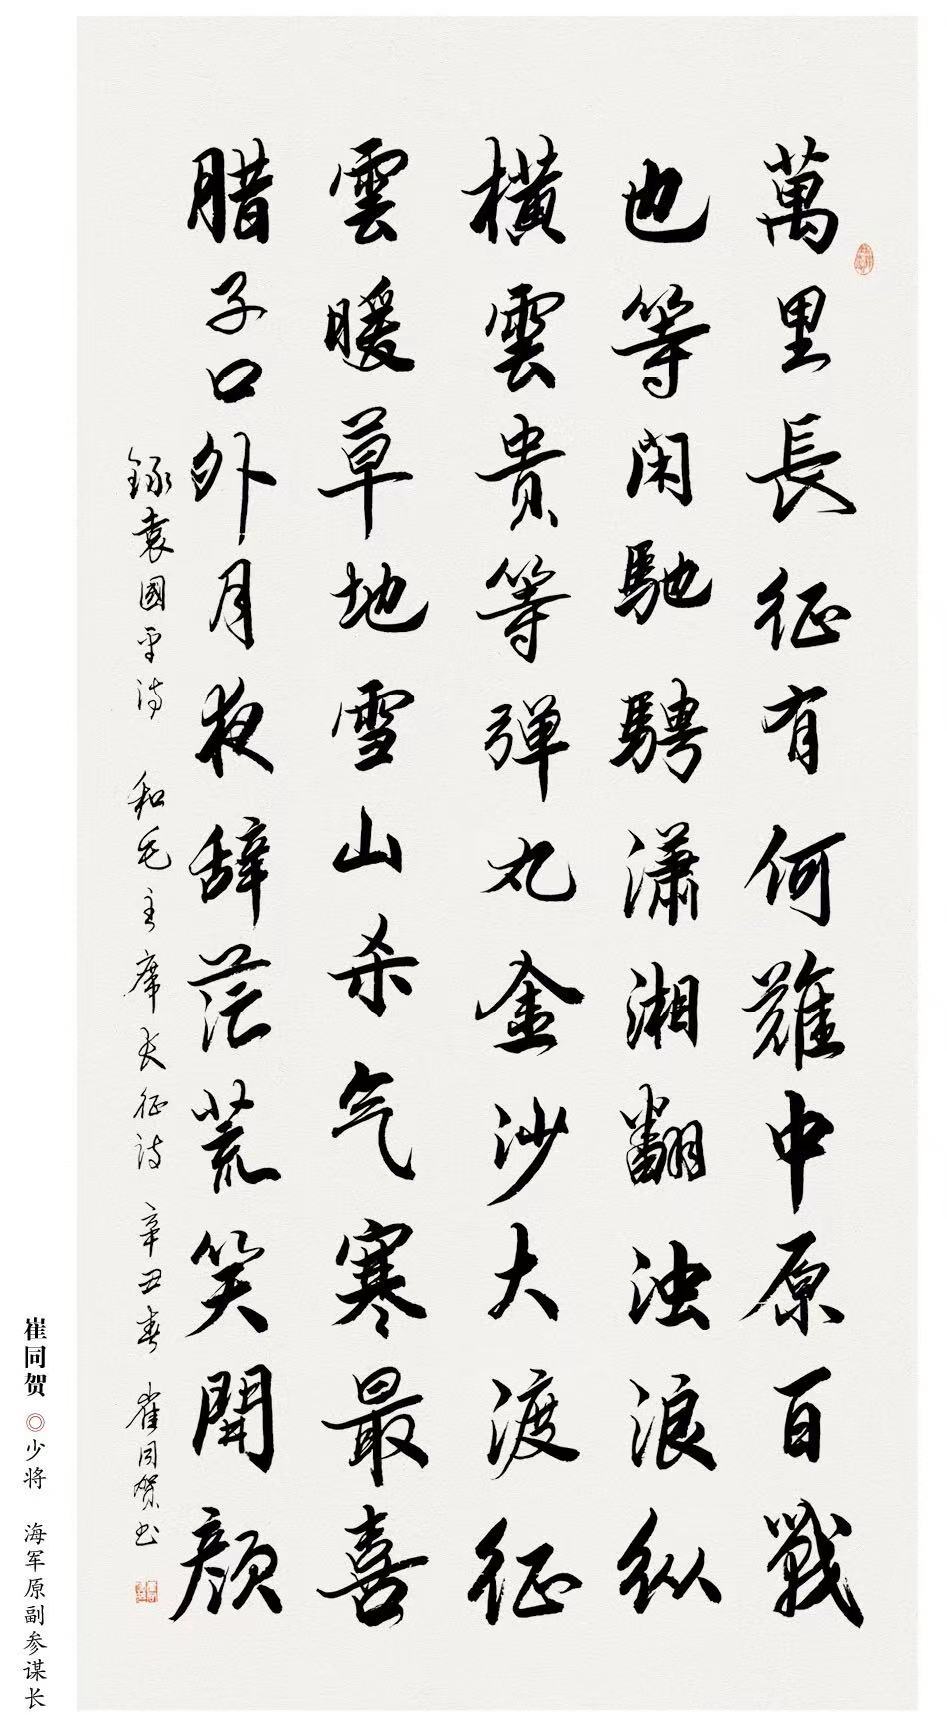 萬里長征有何難中原百戰
也等闲馳騁潇湘翻浊浪纵
橫雲贵等弹丸金沙大渡征
雲暖草地雪山杀气寒最喜
腊子口外月夜辞茫荒笑開颜
録袁國平诗 和毛主席长征诗 辛丑春 崔同贺书
崔同贺 ◎ 少将 海军原副参谋长